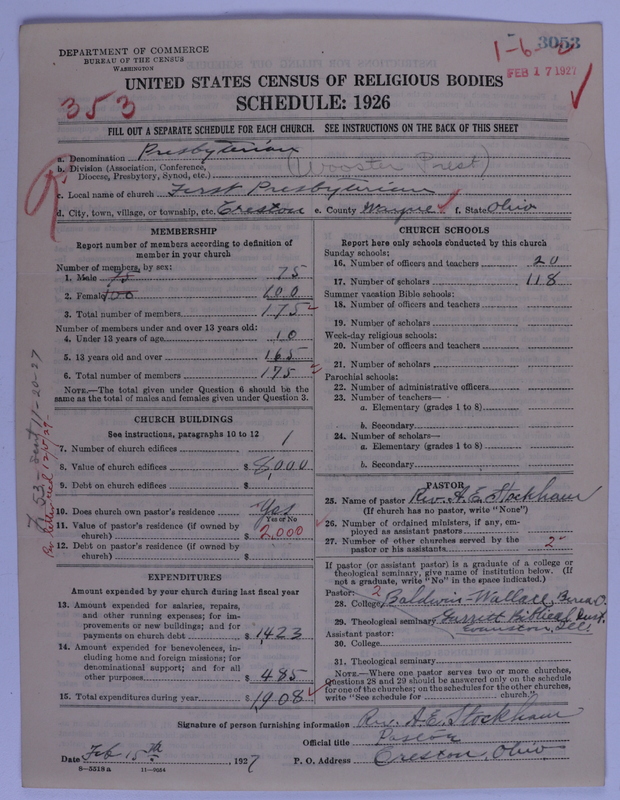 DEPARTMENT OF COMMERCE
BUREAU OF THE CENSUS
WASHINGTON
1-6- 3053
FEB 17 1927
UNITED STATES CENSUS OF RELIGIOUS BODIES
353
SCHEDULE: 1926
FILL OUT A SEPARATE SCHEDULE FOR EACH CHURCH. SEE INSTRUCTIONS ON THE BACK OF THIS SHEET
a. Denomination Presbyterian
b. Division (Association, Conference, Diocese, Presbytery, Synod, etc.) (Wooster Presb)
c. Local name of church First Presbyterian
d. City, town, village, or township, etc. Creston e. County Wayne f. State Ohio
MEMBERSHIP
Report number of members according to definition of
member in your church
Number of members, by sex:
1. Male 75 75
2. Female 100 100
3. Total number of members 175
Number of members under and over 13 years old:
4. Under 13 years of age 10
5. 13 years old and over 165
6. Total number of members 175
NOTE.—The total given under Question 6 should be the
same as the total of males and females given under Question 3.
CHURCH BUILDINGS
See instructions, paragraphs 10 to 12
7. Number of church edifices 1
8. Value of church edifices $ 8,000
9. Debt on church edifices $
10. Does church own pastor's residence Yes
Yes or No
11. Value of pastor's residence (if owned by
church) $ 2,000
12. Debt on pastor's residence (if owned by
church) $
EXPENDITURES
Amount expended by your church during last fiscal year
13. Amount expended for salaries, repairs,
and other running expenses; for im-
provements or new buildings; and for
payments on church debt $ 1423
14. Amount expended for benevolences, in-
cluding home and foreign missions; for
denominational support; and for all
other purposes $ 485
15. Total expenditures during year $ 1908
CHURCH SCHOOLS
Report here only schools conducted by this church
Sunday schools:
16. Number of officers and teachers 20
17. Number of scholars 118
Summer vacation Bible schools:
18. Number of officers and teachers
19. Number of scholars
Week-day religious schools:
20. Number of officers and teachers
21. Number of scholars
Parochial schools:
22. Number of administrative officers
23. Number of teachers—
a. Elementary (grades 1 to 8)
b. Secondary
24. Number of scholars—
a. Elementary (grades 1 to 8)
b. Secondary
PASTOR
25. Name of pastor Rev. A. E. Stockham
(If church has no pastor, write "None")
26. Number of ordained ministers, if any, em-
ployed as assistant pastors
27. Number of other churches served by the
pastor or his assistants 2
If pastor (or assistant pastor) is a graduate of a college or
theological seminary, give name of institution below. (If
not a graduate, write "No" in the space indicated.)
Pastor: 2
28. College Baldwin-Wallace, Berea O.
29. Theological seminary Garrett Biblical Inst.
Evanston, Ill.
Assistant pastor:
30. College
31. Theological seminary
NOTE.—Where one pastor serves two or more churches,
Questions 28 and 29 should be answered only on the schedule
for one of the churches; on the schedules for the other churches,
write "See schedule for church."
Signature of person furnishing information Rev. A. E. Stockham
Official title Pastor
Date Feb 15th, 1927 P. O. Address Creston, Ohio
8-5518 a 11-9084